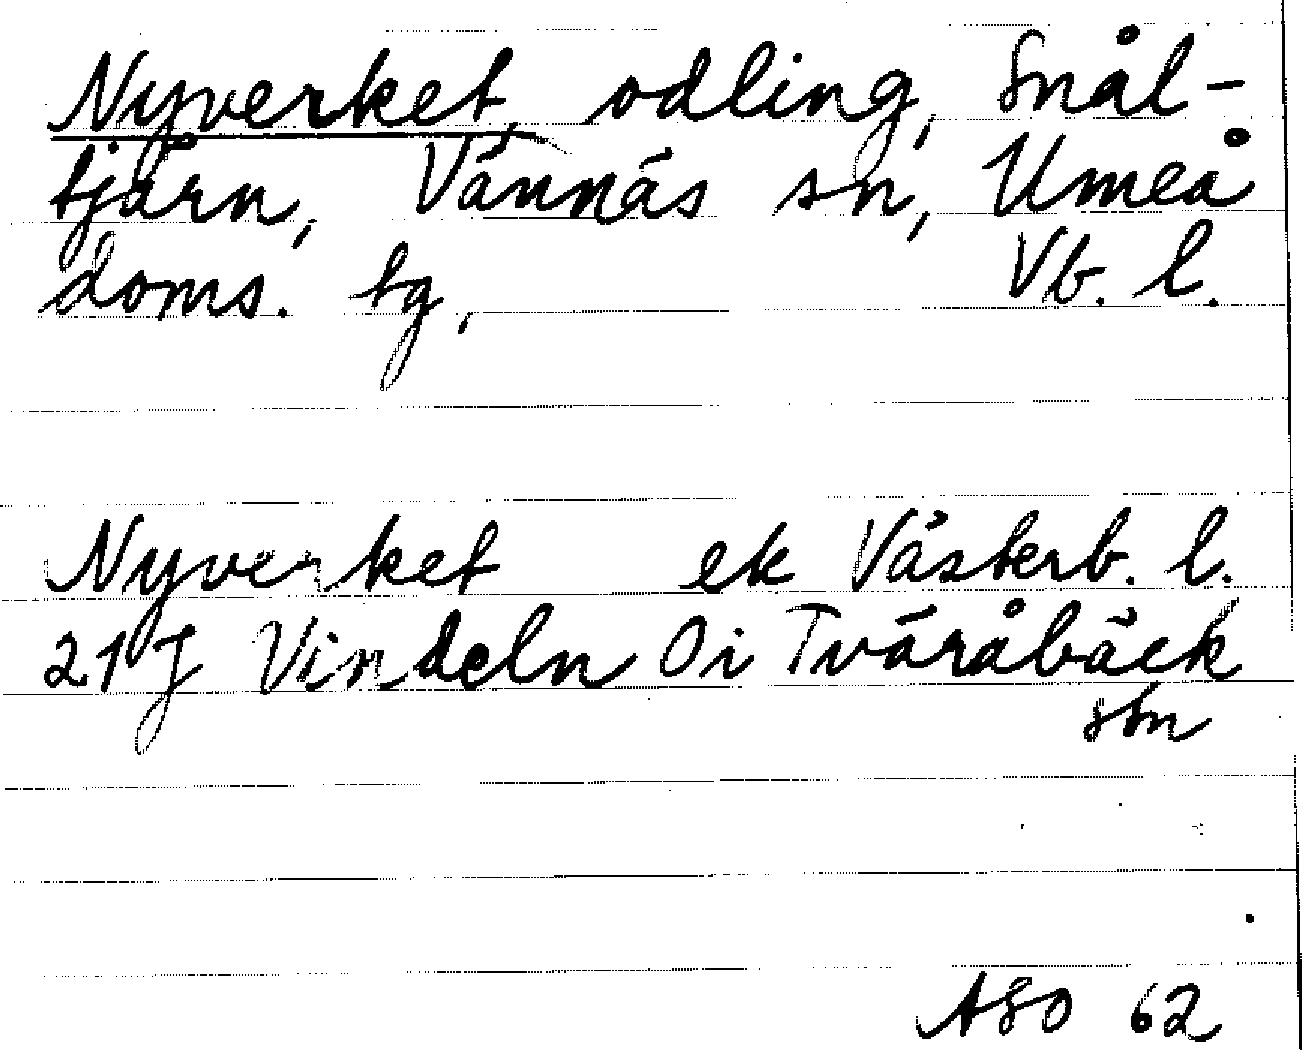 Nyverket, odling, Snål-
tjärn, Vännäs sn, Umeå
doms. tg, Vb. l.
Nyverket ek Västerb. l.
21J Vindeln Oi Tväråbäck
sbn
ASO 62